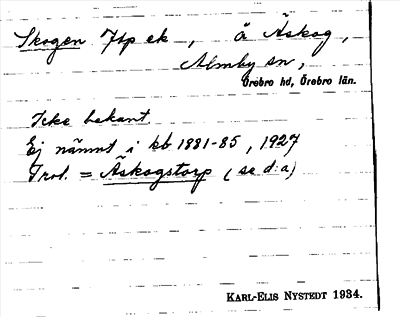 Skogen Ttp ek , å Äskog ,
Almby sn,
Örebro hd, Örebro län.
Icke bekant.
Ej nämnt i kb 1881-85 , 1927
Trol. = Äskogstorp ( se d:a)
KARL-ELIS NYSTEDT 1934.